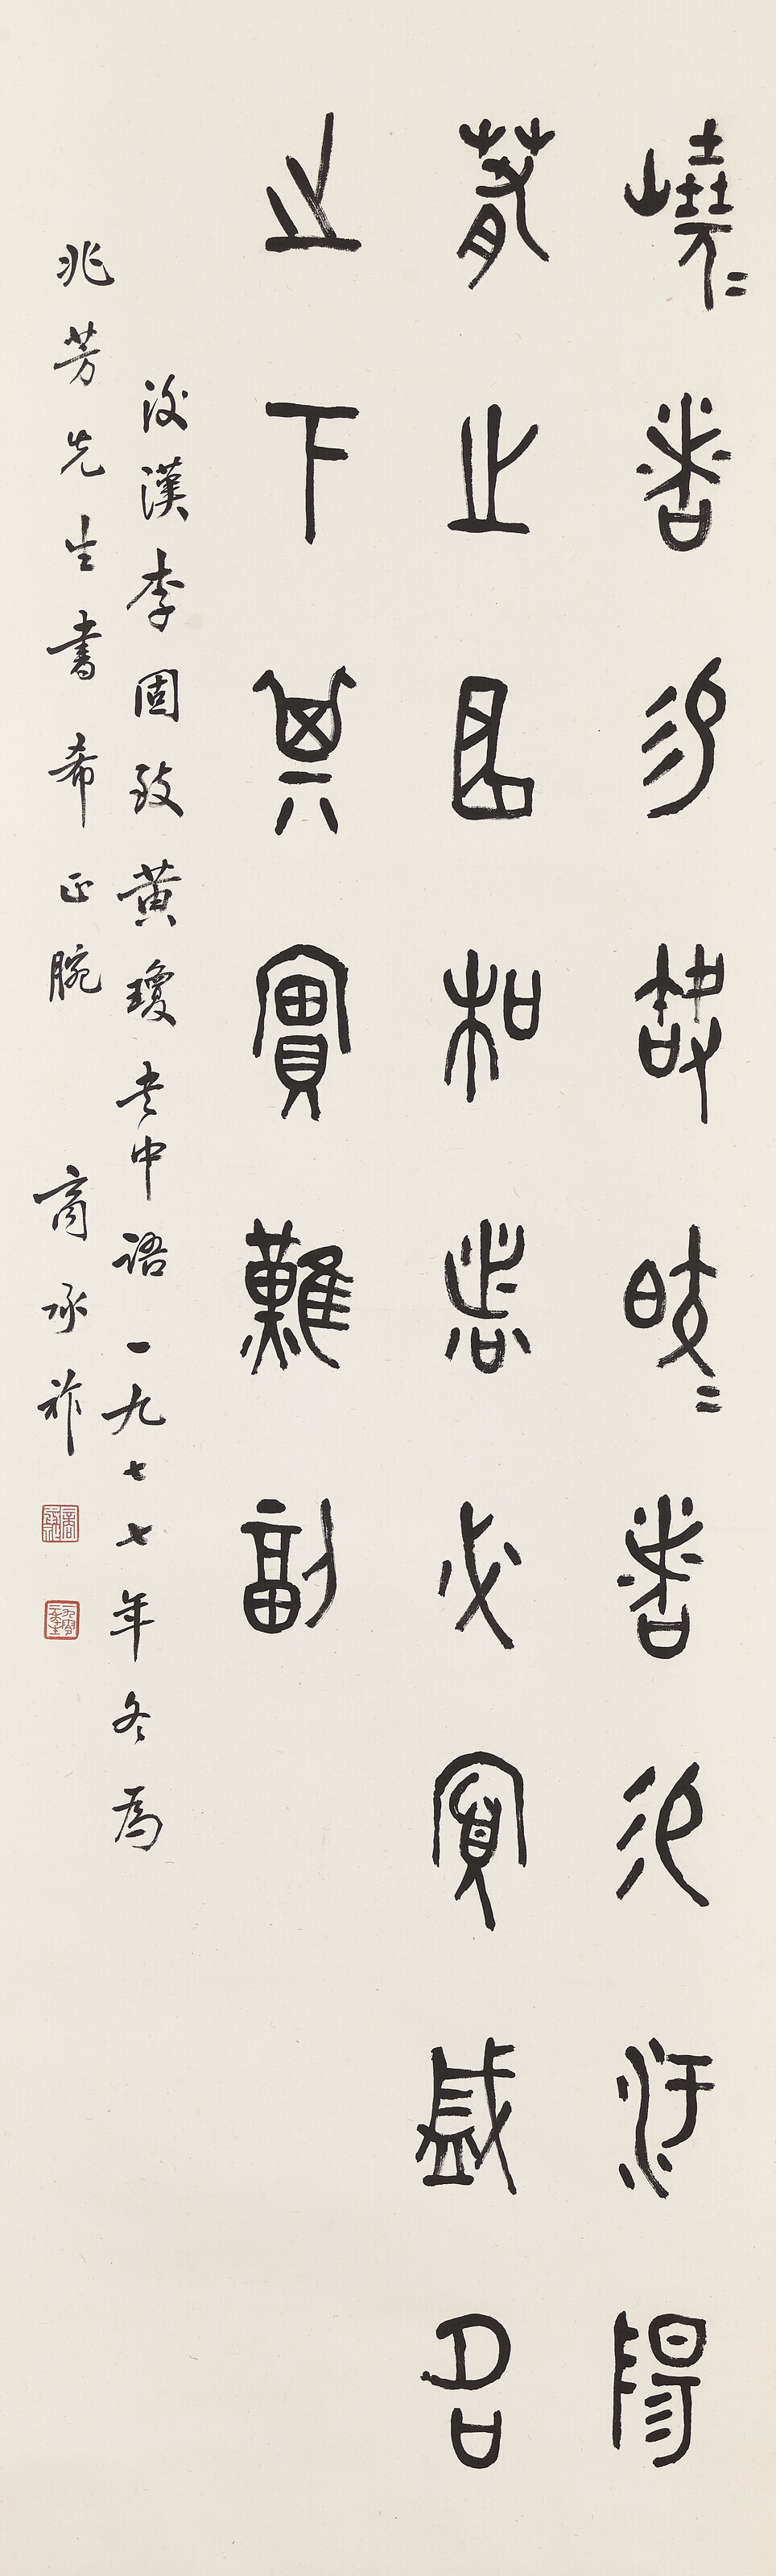 嶢〻者易缺皎〻者易汙陽
春之曲和者必寡盛名
之下其實難副
後漢李固致黃瓊书中語一九七七年冬為
兆芳先生書希正腕 商承祚